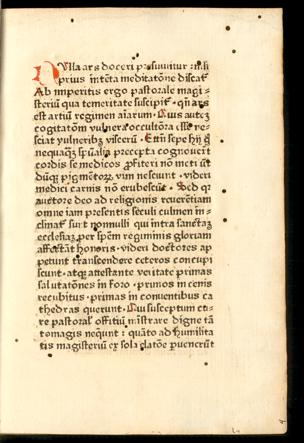 Ulla ars doceri presumitur : nisi
prius intēta meditatōne discat᷑
Ab imperitis ergo pastorale magi⸗
sterium qua temeritate suscipit᷑ · qn̄ ars
est artium regimen aīarum · Quis autez
cogitatōm vulnera occultiora esse ne⸗
sciat vulneribus viscerū · Et tn̄ sepe hij q̄
nequaqz spūalia precepta cognouerūt
cordis se medicos ꝓfiteri nō metūūt
dūqz pigmētorz vim nesciunt · videri
medici carnis nō erubescūt · Sed qr
auctore deo ad religionis reuerētiam
omne iam presentis seculi culmen in⸗
clinat᷑ · sunt nonnulli qui intra sanctaz
ecclesiaz per spēm regiminis gloriam
affectāt honoris · videri doctores ap
petunt transcendere ceteros concupi
scunt · atqz attestante veritate primas
salutatōnes in foro · primos in cenis
recubitus · primas in conuentibus ca
thedras querunt · Qui susceptum cu⸗
re pastoral᷑ officiū mīstrare digne tā
tomagis nequnt : quāto ad humilita
tis magisterium ex sola elatōe puenerūt